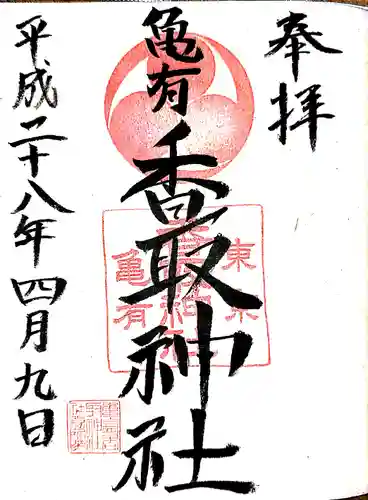 奉拝
亀有
香取神社
東京
亀有
香取神社
平成二十八年四月九日